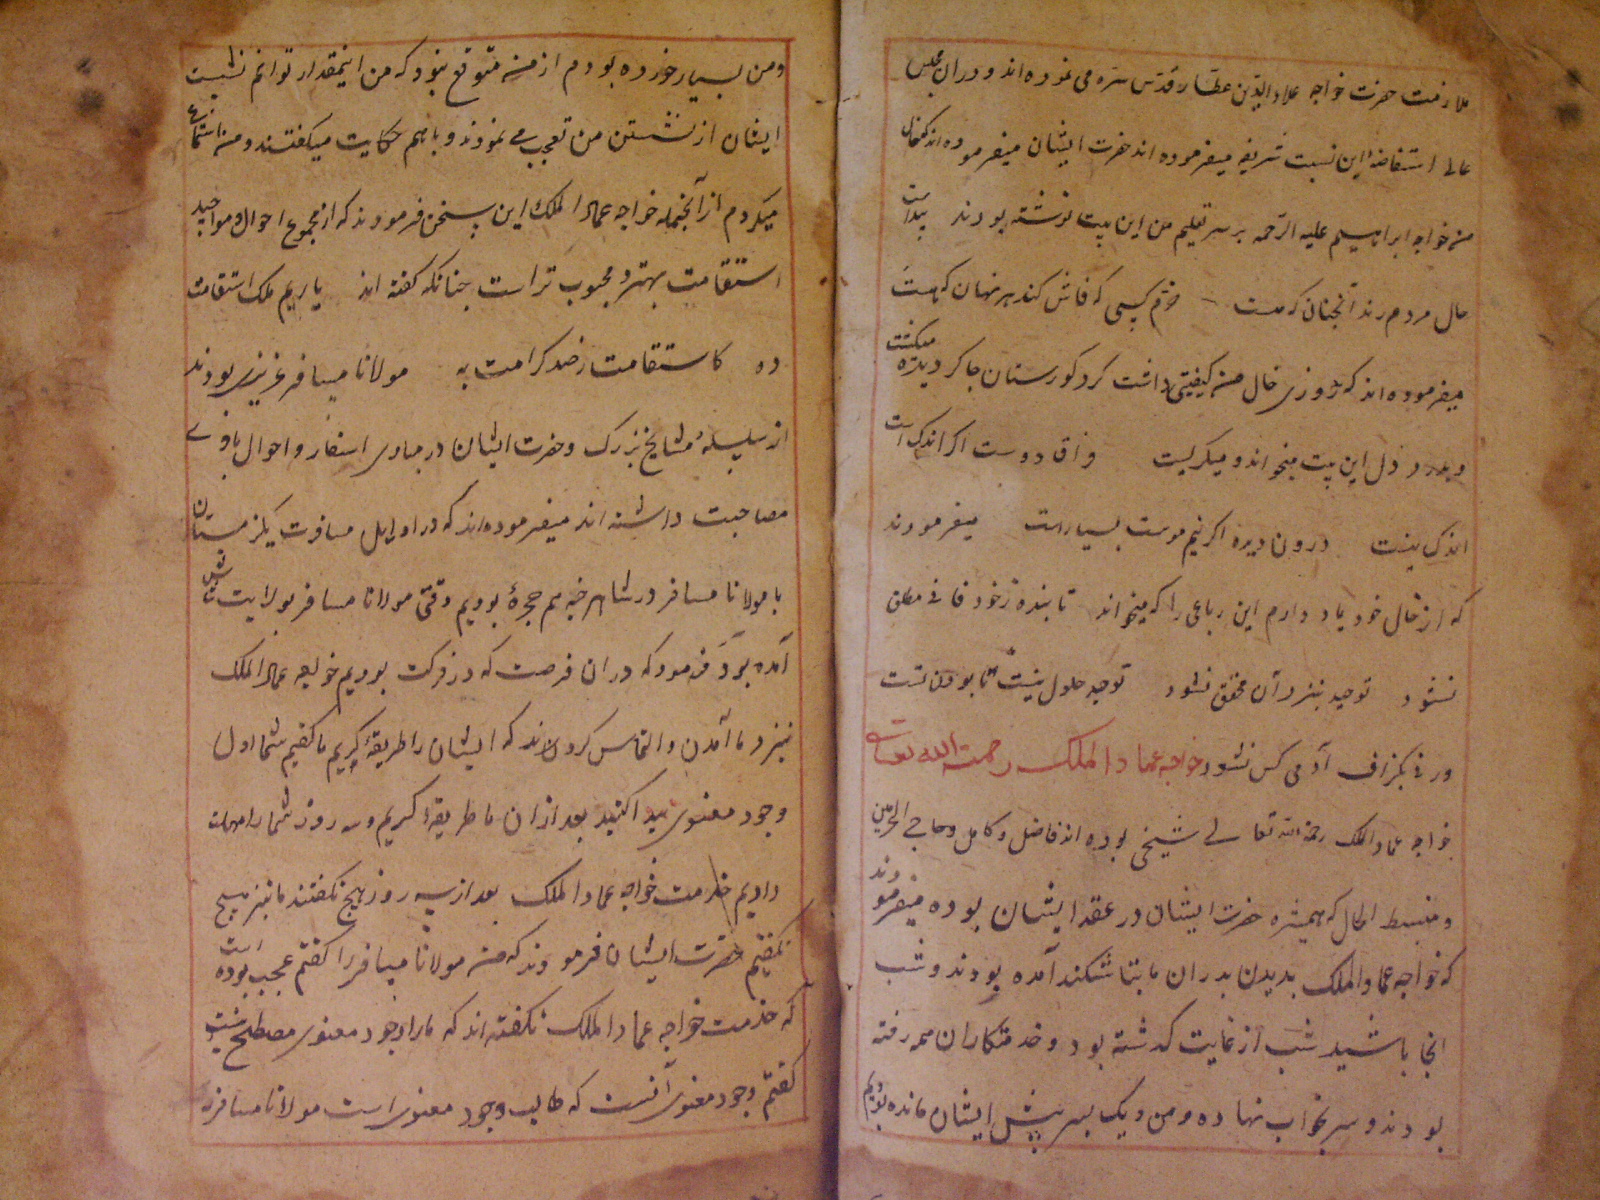 ملازمت حضرت خواجه علاء الدین عطار قدس سره می نموده اند و دران مجلس
عالی استفاضهٔ این نسبت شریفه میفرموده اند حضرت ایشان میفرموده اند که خال
من خواجه ابراهیم علیه الرحمه بر سر تعلیم من این بیت نوشته بودند پیداست
حال مردم رند آنچنان که هست خرم کسی که فاش کند هر نهان که هست
میفرموده اند که روزی خال من کیفیتی داشت کرد کورستان جاکردیزه میکشت
و بدرد دل این بیت میخواند و میکریست فراق دوست اگر اندک است
اندک نیست درون دیده اگر نیم موست بسیار است میفرمودند
که از خال خود یاد دارم این رباعی را که میخواند تا بنده ز خود فانی مطلق
نشود توحید بنزد آن محقق نشود توحید حلول نیست نابودن تست
ورنی بگزاف آدمی کس نشود خواجه عماد الملک رحمت الله تعالی
خواجه عماد الملک رحمة الله تعالی شیخی بوده اند فاضل و کامل و حاجی الحرمین
و منبسط الحال که همشیره حضرت ایشان در عقد ایشان بوده میفرمودند
که خواجه عماد الملک بدیدن پدران ما بتاشکند آمده بودند و شب
انجا باشید شب از غایت گذشته بود و خدمتکاران همه رفته
بودند و سر بخواب نهاده و من و یک پسر پیش ایشان مانده بودیم
ومن بسیار خورد بودم از من متوقع نبود که من اینمقدار توانم نشست
ایشان از نشستن من تعجب می نمودند و باهم حکایت میکفتند و من استماع
میکردم از آنجمله خواجه عماد الملک این سخن فرمودند که از مجموع احوال و مواجید
استقامت بهتر و محبوب تر است چنانکه کفته اند یاریم ملک استقامت
ده کاستقامت ز صد کرامت به مولانا مسافر عزیزی بودند
از سلسلهٔ مشایخ بزرک و حضرت ایشان در مبادی اسفار و احوال باوی
مصاحبت داشته اند میفرموده اند که در اوایل مسافرت یکزمستان
با مولانا مسافر در شاهرخیه هم حجرهٔ بودیم وقتی مولانا مسافر بولایت شاش
آمده بود فرمود که دران فرصت که در فرکت بودیم خواجه عماد الملک
نیزد ما آمدن و التماس کردند که ایشان را طریقه کوییم ما کفتیم شما اول
وجود معنوی پیدا کنید بعد ازان ما طریقهٔ کوییم و سه روز شما را مهلت
دادیم خدمت خواجه عماد الملک بعد از سه روز هیچ نکفتند ما نیز هیچ
نکفتیم حضرت ایشان فرمودند که من مولانا مسافر را کفتم عجب بوده است
که خدمت خواجه عماد الملک نکفته اند که ما را وجود معنوی مصطلح شیت
کفتم وجود معنوی آنست که طالب وجود معنوی است مولانا مسافر